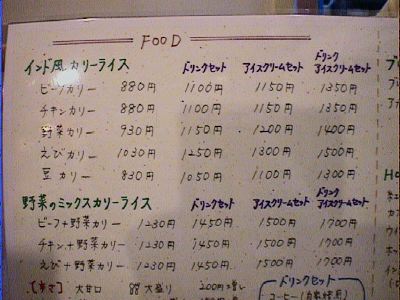 FOOD
インド風カリーライス ドリンクセット アイスクリームセット ドリンクアイスクリームセット
ビーフカリー 880円 1100円 1150円 1350円
チキンカリー 880円 1100円 1150円 1350円
野菜カリー 930円 1150円 1200円 1400円
えびカリー 1030円 1250円 1300円 1500円
豆カリー 830円 1050円 1100円 1300円
野菜のミックスカリーライス ドリンクセット アイスクリームセット ドリンクアイスクリームセット
ビーフ+野菜カリー 1230円 1450円 1500円 1700円
チキン+野菜カリー 1230円 1450円 1500円 1700円
えび+野菜カリー 1230円 1450円 1500円 1700円
大甘口 大盛り 200円増し
ドリンクセット